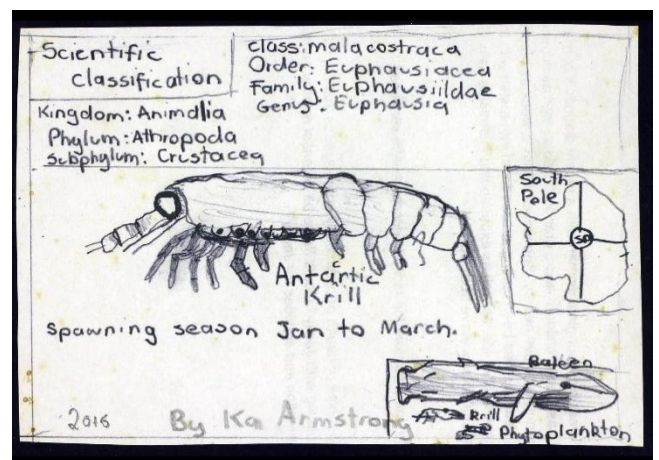 Scientific
classification
Kingdom: Animalia
Phylum: Athropoda
subphylum: Crustacea
class: malacostraca
Order: Euphausiacea
Family: EuPhausiildae
Genus: Euphausia
South
Pole
SP
Antarctic
Krill
Spawning season Jan to March.
Baleen
Krill
Phytoplankton
2016
By Ka Armstrong